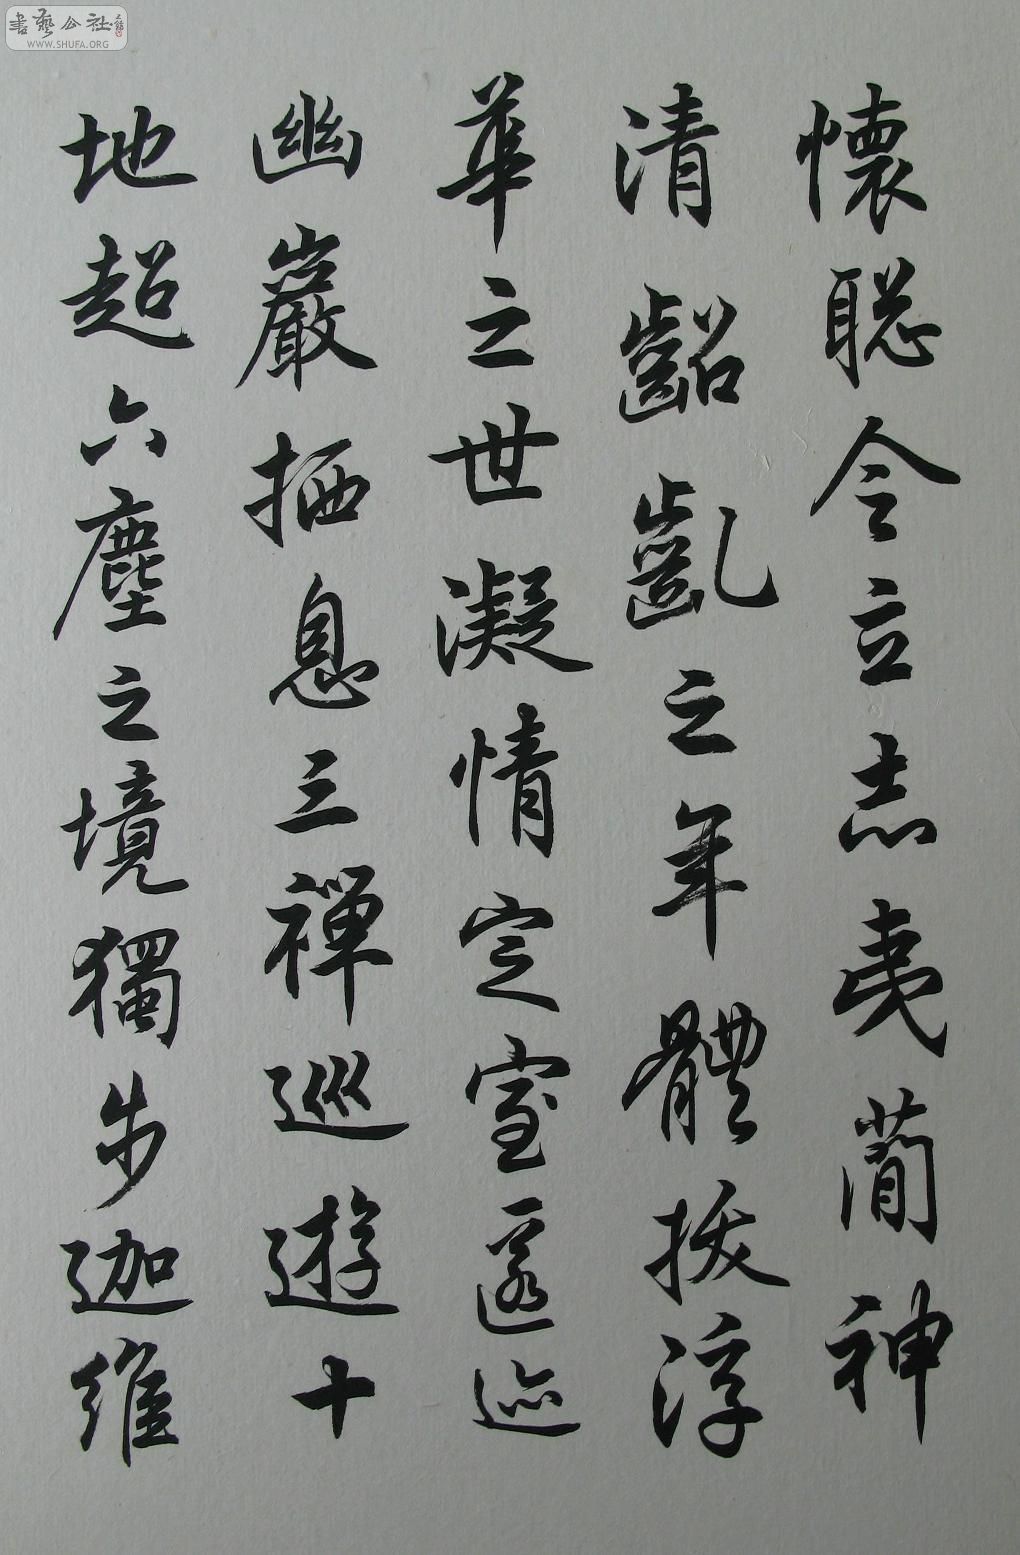 懷聡令立志夷蕳神
清齠齔之年體拔浮
華之世凝情定室匿迹
幽巖栖息三禪巡遊十
地超六塵之境獨步迦維
書藝公社
WWW.SHUFA.ORG